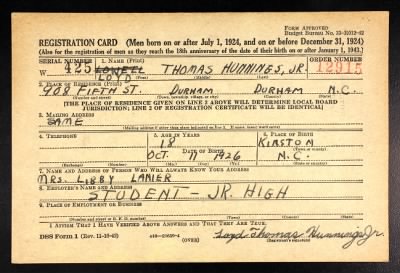 FORM APPROVED
Budget Bureau No. 33-R012-42
REGISTRATION CARD (Men born on or after July 1, 1924, and on or before December 31, 1924)
(Also for the registration of men as they reach the 18th anniversary of the date of their birth on or after January 1, 1943.)
SERIAL NUMBER 1. NAME (Print) ORDER NUMBER
W 425 LOWELL THOMAS HUNNINGS, JR. 12915
LOYD
(First) (Middle) (Last)
2. PLACE OF RESIDENCE (Print)
908 FIFTH ST. DURHAM DURHAM N.C.
(Number and street) (Town, township, village, or city) (County) (State)
[THE PLACE OF RESIDENCE GIVEN ON LINE 2 ABOVE WILL DETERMINE LOCAL BOARD
JURISDICTION; LINE 2 OF REGISTRATION CERTIFICATE WILL BE IDENTICAL]
3. MAILING ADDRESS
SAME
[Mailing address if other than place indicated on line 2. If same, insert word same]
4. TELEPHONE 5. AGE IN YEARS 6. PLACE OF BIRTH
18 KINSTON
DATE OF BIRTH (Town or county)
OCT. 11 1926 N.C.
(Exchange) (Number) (Mo.) (Day) (Yr.) (State or country)
7. NAME AND ADDRESS OF PERSON WHO WILL ALWAYS KNOW YOUR ADDRESS
MRS. LIBBY LANIER
8. EMPLOYER'S NAME AND ADDRESS
STUDENT - JR. HIGH
9. PLACE OF EMPLOYMENT OR BUSINESS
(Number and street or R. F. D. number) (Town) (County) (State)
I AFFIRM THAT I HAVE VERIFIED ABOVE ANSWERS AND THAT THEY ARE TRUE.
DSS Form 1 (Rev. 11-16-42) (OVER) Loyd Thomas Hunnings Jr.
(Registrant's signature)